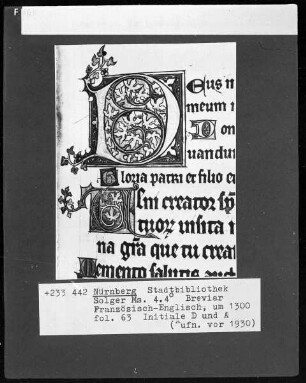 Deus in
meum i
Don
uandum
Gloria patri et filio et
Veni creator sp̄
tuoꝝ visita
na gr̄a que tu crea
emento salutis auct
+233 442 Nürnberg Stadtbibliothek
Solger Ms. 4.4° Brevier
Französisch-Englisch, um 1300
fol. 63 Initiale D und A
(Aufn. vor 1930)